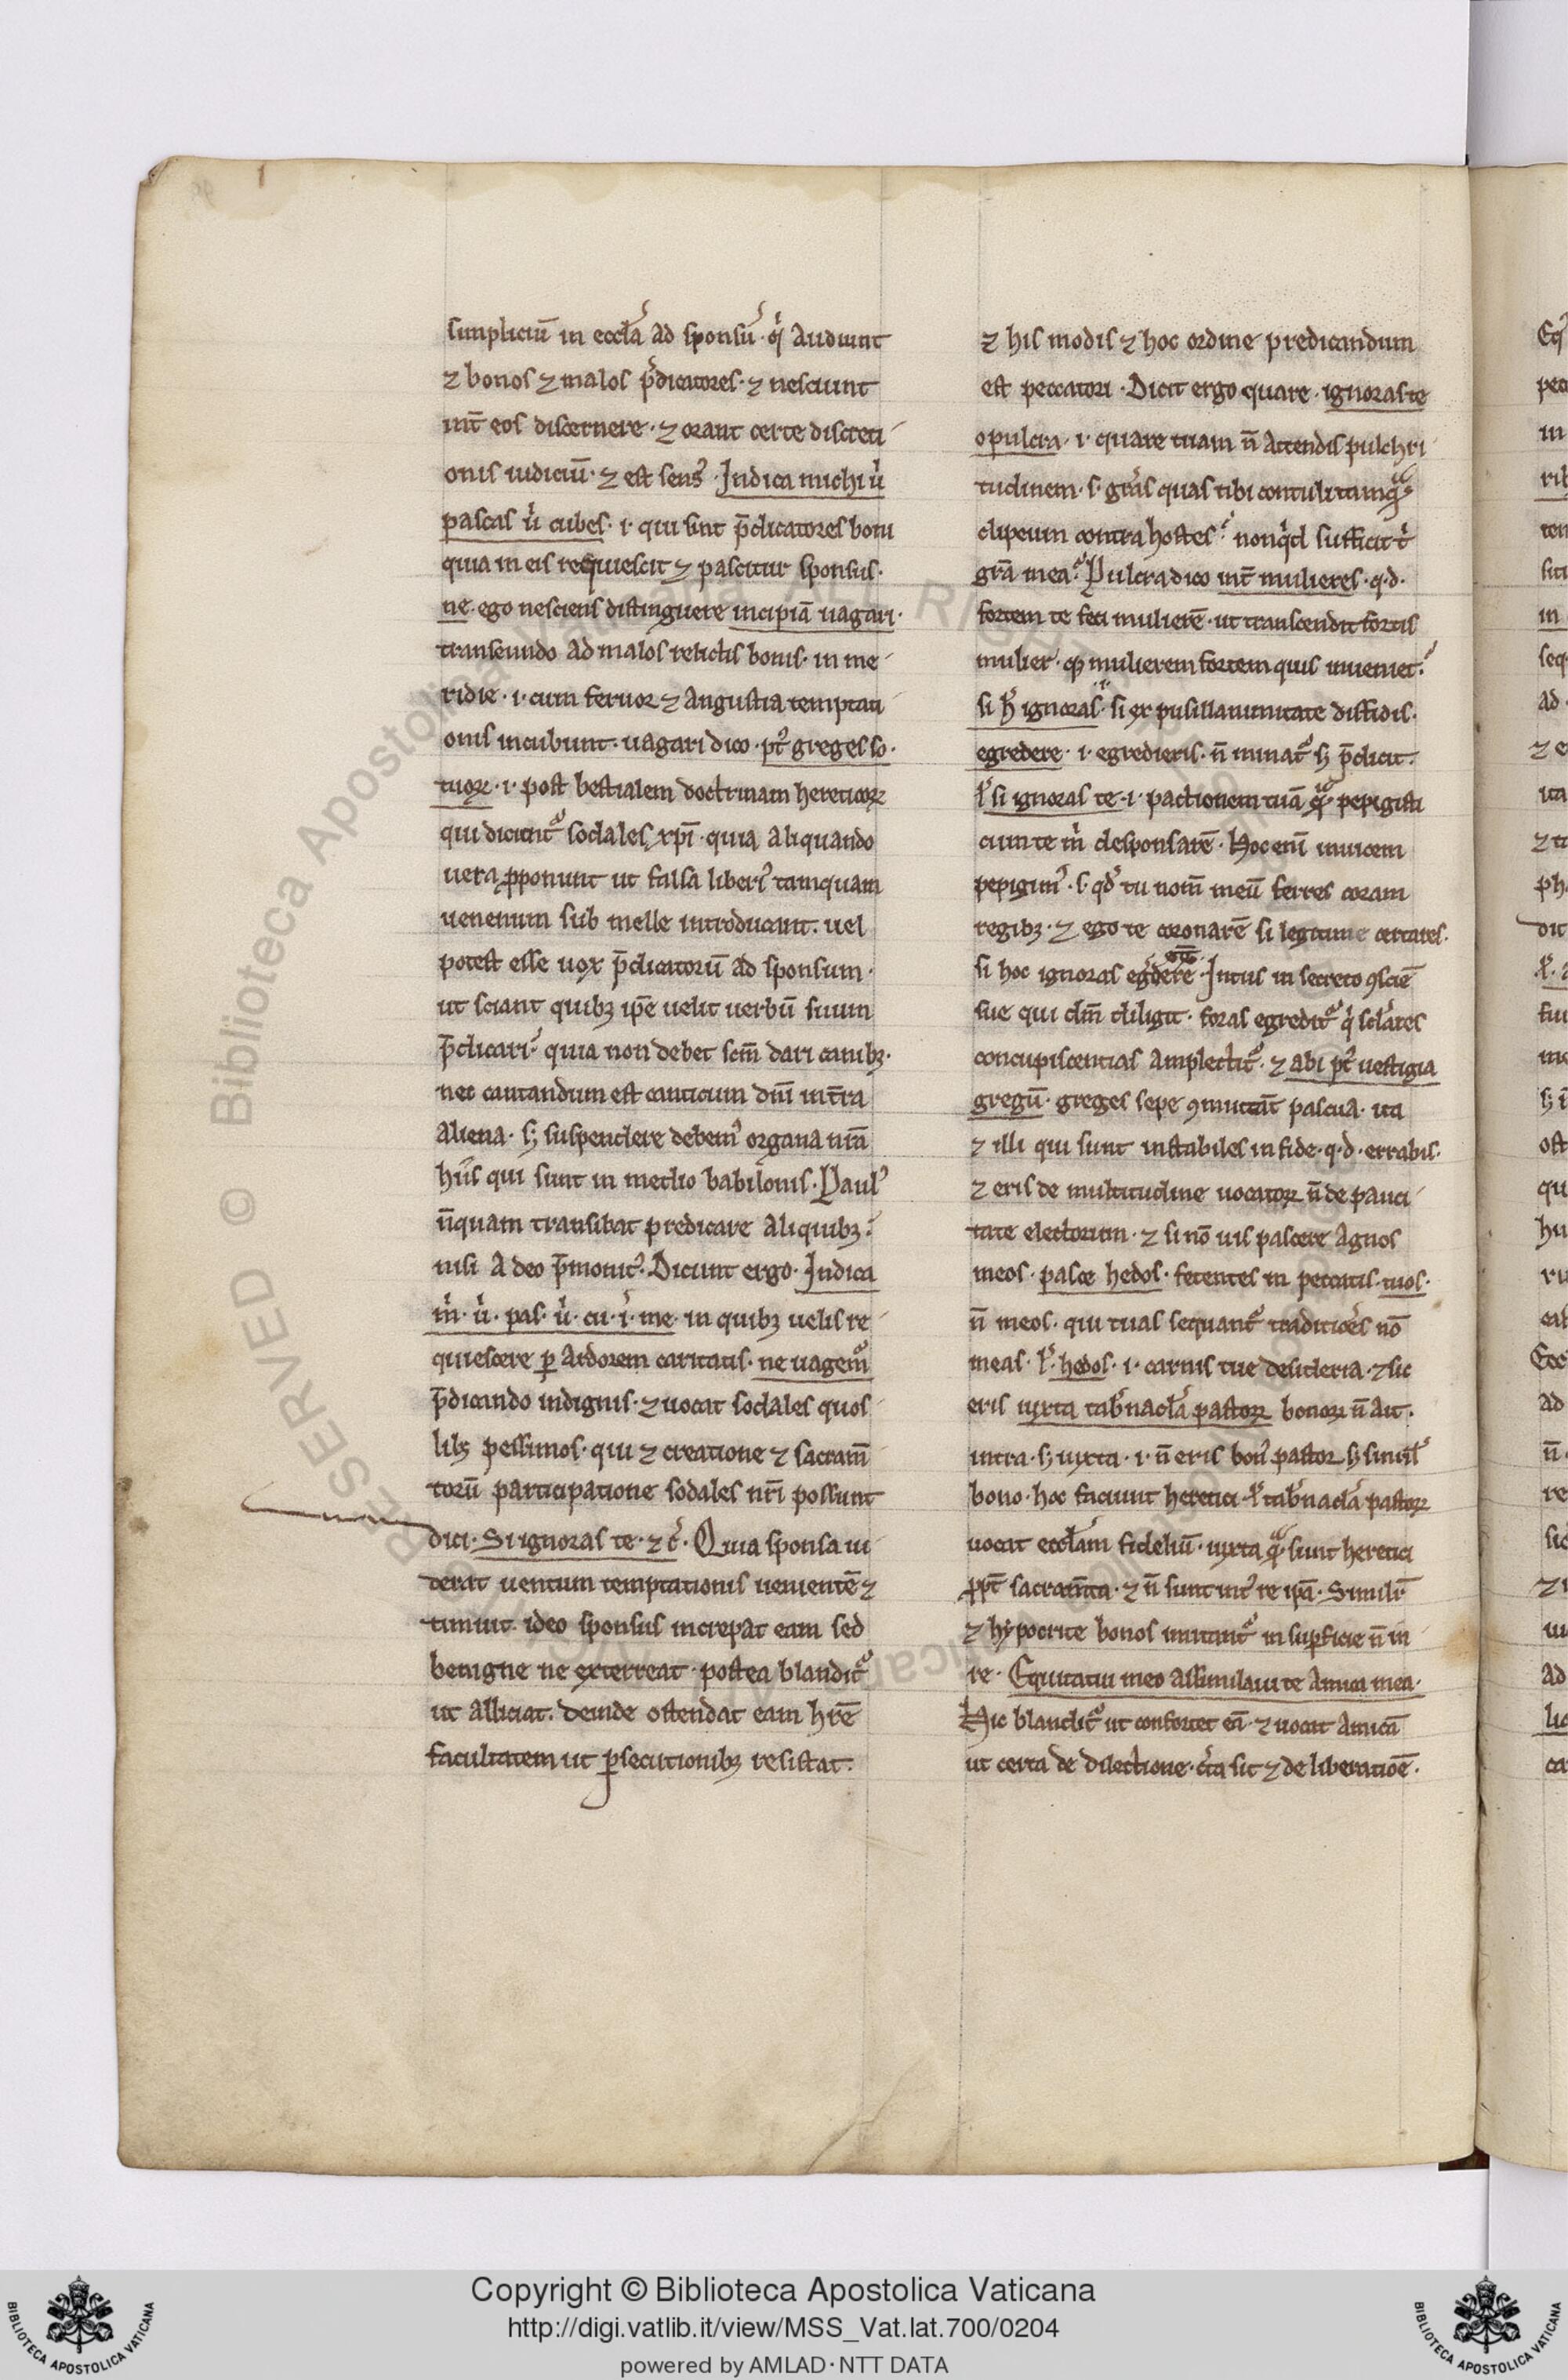 simpliciū in eccłā ad sponsū· qͥ audiunt
⁊ bonos ⁊ malos p̄dicatores· ⁊ nesciunt
int̄ eos discernere· ⁊ orant certe discreti
onis iudiciū· ⁊ est sensꝰ· Indica michi uͥ
pascas uͥ cubes· i· qui sint p̄dicatores boni
quia in eis requiescit ⁊ pascitur sponsus·
ne· ego nesciens distinguere incipiā uagari·
transeundo ad malos relictis bonis· in me
ridie· i· cum feruor ⁊ angustia temptati
onis incubunt· uagari dico· pꝰt greges so·
tuoꝝ· i· post bestialem doctrinam hereticoꝝ
qui dicunt᷑ sodales xp̄i· quia aliquando
uera ꝓponunt ut falsa liberiꝰ tamquam
uenenum sub melle introducant· uel
potest esse uox p̄dicatorū ad sponsum·
ut sciant quibꝫ ip̄e uelit uerbū suum
p̄dicari· quia non debet scm̄ dari canibꝫ·
nec cantandum est canticum dn̄i in t̄ra
aliena· ꝫ suspendere debemꝰ organa nr̄a
hiis qui sunt in medio babilonis· Paulꝰ
n̄quam transibat predicare aliquibꝫ·
nisi a deo p̄monitꝰ· Dicunt ergo· Indica
mͥ· uͥ· pas· uͥ· cu· i· me· in quibꝫ uelis re
quiescere ꝑ ardorem caritatis· ne uagem᷑
p̄dicando indignis· ⁊ uocat sodales quos
libꝫ pessimos· qui ⁊ creatione ⁊ sacram̄
torū participatione sodales nr̄i possunt
dici· Si ignoras te· ⁊c̄· Quia sponsa ui
derat uentum temptationis uenientē ⁊
timuit· ideo sponsus increpat eam sed
benigne ne exterreat· postea blandit᷑
ut alliciat· deinde ostendat eam hr̄e
facultatem ut ꝑsecutionibꝫ resistat·
⁊ his modis ⁊ hoc ordine predicandum
est peccatori· Dicit ergo quare· ignoras te
o pulcra· i· quare tuam n̄ attendis pulchri
tudinem· s· gr̄as quas tibi contuli tamqᷓ
clipeum contra hostes· nonqͥd sufficit tͥ
gr̄a mea· Pulcra dico int̄ mulieres· q·d·
fortem te feci mulierē· ut transcendit fortis
mulier· mulierem fortem quis inueniet·
si h̄ ignoras· si ex pusillanimitate diffidis·
egredere· i· egredieris· n̄ minat᷑ ꝫ p̄dicit·
ł si ignoras te· i· pactionem tuā qᷓ· pepigisti
cum te mͥ desponsarē· Hoc eni inuicem
pepigimꝰ· s· qd̄ tu nom̄ meū ferres coram
regibꝫ· ⁊ ego te coronarē si legitime certares·
si hoc ignoras egͬdere· Intus in secreto ꝯsciē
sue qui dm̄ diligit· foras egredit᷑ qͥ sclāres
concupiscentias amplectit᷑· ⁊ abi pꝰt uestigia
gregū· greges sepe ꝯmutant pascua· ita
⁊ illi qui sunt instabiles in fide· q·d· errabis·
⁊ eris de multitudine uocatoꝝ n̄ de pauci
tate electorum· ⁊ si nō uis pascere agnos
meos· pasce hedos· fetentes in peccatis· tuos·
n̄ meos· qui tuas sequant᷑ traditiōes nō
meas· ł· hedos· i· carnis tue desideria· ⁊ sic
eris iuxta tab̄nacła pastoꝝ bonoꝝ n̄ ait·
intra· ꝫ iuxta· i· n̄ eris bonꝰ pastor ꝫ similꝰ
bono· hoc faciunt heretici· ł tab̄nacła pastoꝝ
uocat eccłam fideliū· iuxta qᷓ· sunt heretici
ꝓpt̄ sacram̄ta· ⁊ n̄ sunt intꝰ re ip̄a· Similr̄
⁊ hypocrite bonos imitant᷑ in suꝑficie n̄ in
re· Equitatui meo assimilaui te amica mea·
Hic blandit᷑ ut confortet eā· ⁊ uocat amicā
ut certa de dilectione· c̄ta sit ⁊ de liberatiōe·
Copyright © Biblioteca Apostolica Vaticana
http://digi.vatlib.it/view/MSS_Vat.lat.700/0204
powered by AMLAD · NTT DATA
BIBLIOTECA APOSTOLICA VATICANA
BIBLIOTECA APOSTOLICA VATICANA